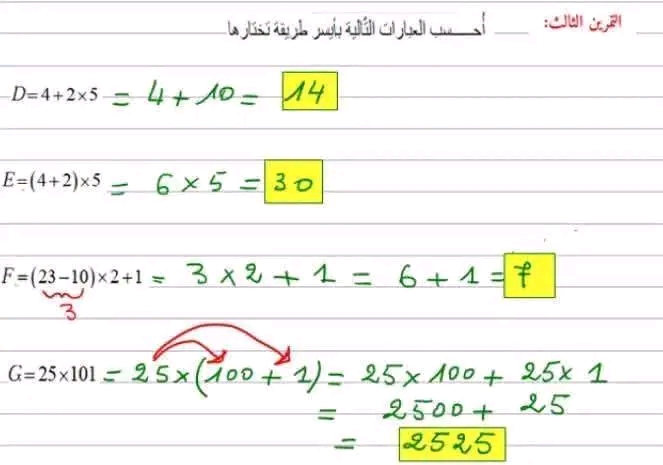 التمرين الثالث: أُحـــسب العبارات التّالية بأيسر طريقة تختارها
D=4+2×5 = 4 + 10 = 14
E=(4+2)×5 = 6 × 5 = 30
F=(23−10)×2+1 = 3 × 2 + 1 = 6 + 1 = 7
3
G=25×101 = 25 × (100 + 1) = 25 × 100 + 25 × 1
= 2500 + 25
= 2525